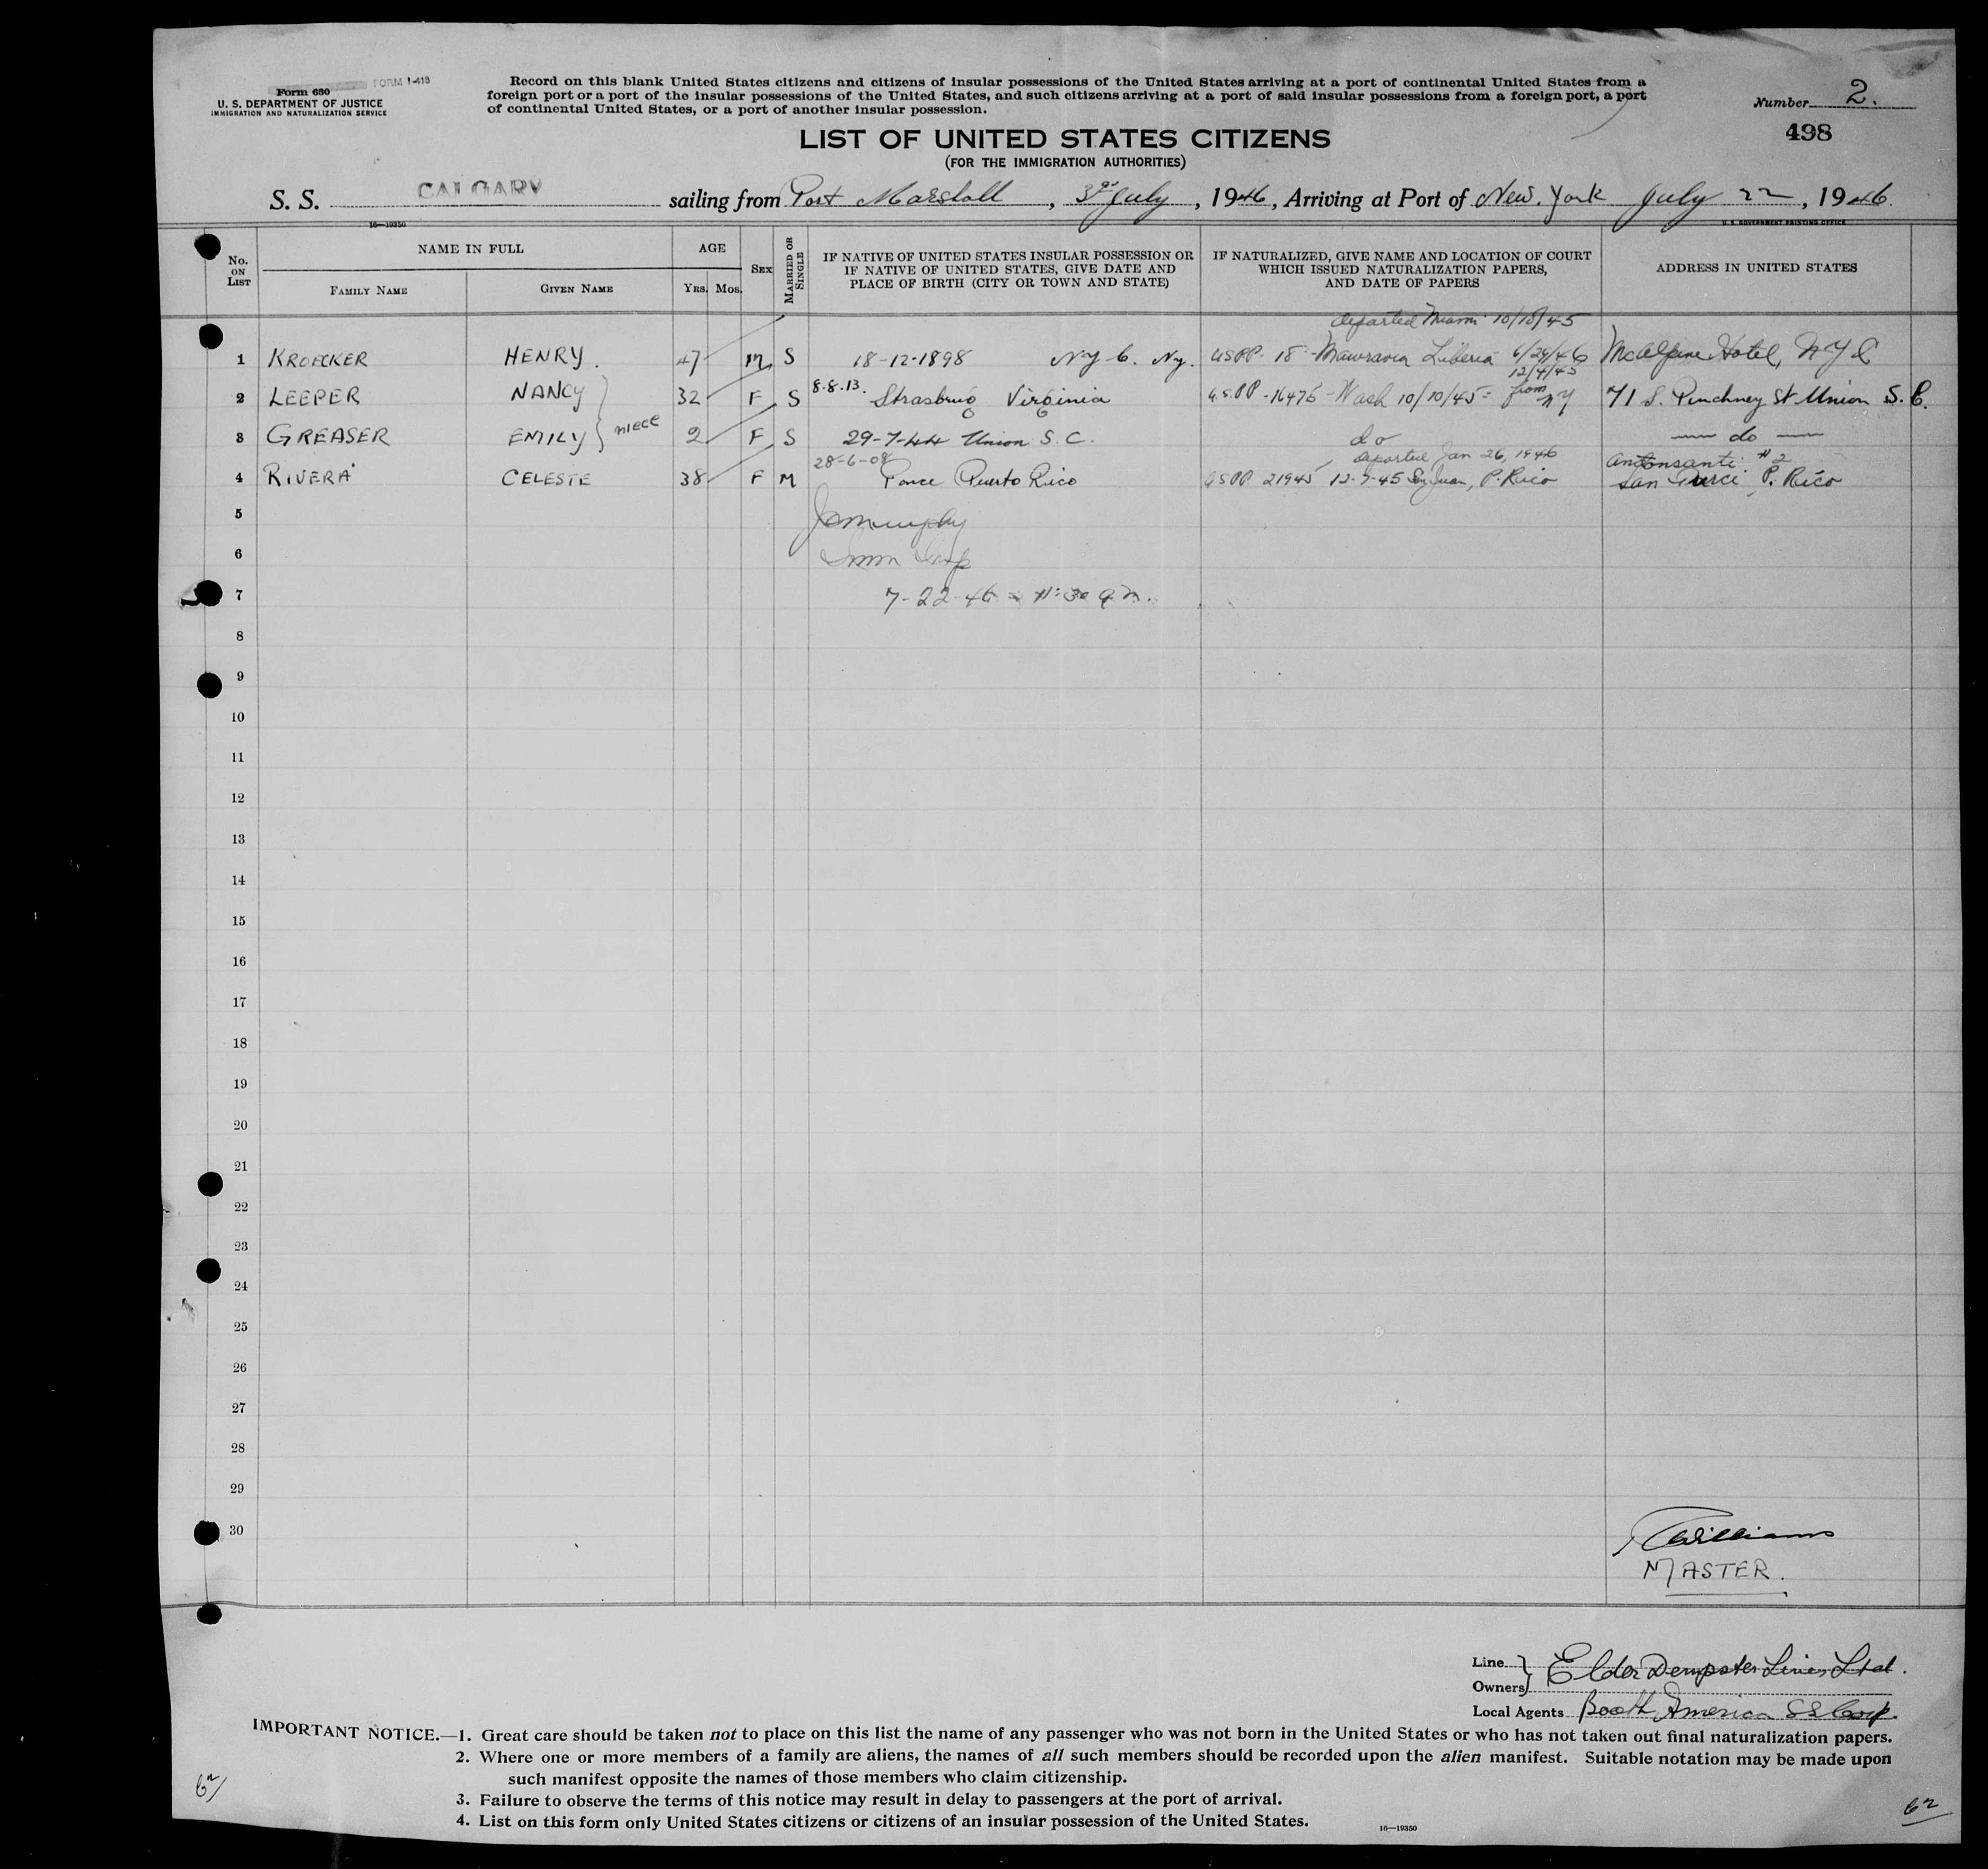 Form 680 FORM I-418
U. S. DEPARTMENT OF JUSTICE
IMMIGRATION AND NATURALIZATION SERVICE
Record on this blank United States citizens and citizens of insular possessions of the United States arriving at a port of continental United States from a
foreign port or a port of the insular possessions of the United States, and such citizens arriving at a port of said insular possessions from a foreign port, a port
of continental United States, or a port of another insular possession.
Number 2.
498
LIST OF UNITED STATES CITIZENS
(FOR THE IMMIGRATION AUTHORITIES)
S. S. CALGARY sailing from Port Marshall, 3rd July, 1946, Arriving at Port of New York July 22, 1946
16—19350
U. S. GOVERNMENT PRINTING OFFICE
No. ON LIST
NAME IN FULL
FAMILY NAME
GIVEN NAME
AGE
YRS. MOS.
SEX
MARRIED OR SINGLE
IF NATIVE OF UNITED STATES INSULAR POSSESSION OR
IF NATIVE OF UNITED STATES, GIVE DATE AND
PLACE OF BIRTH (CITY OR TOWN AND STATE)
IF NATURALIZED, GIVE NAME AND LOCATION OF COURT
WHICH ISSUED NATURALIZATION PAPERS,
AND DATE OF PAPERS
ADDRESS IN UNITED STATES
departed Miami 10/18/45
1 KROECKER HENRY. 47 M S 18-12-1898 N.Y.C. N.Y. USPP- 18- Liberia 6/29/46 McAlpine Hotel, NYC
12/4/45
2 LEEPER NANCY 32 F S 8.8.13. Strasburg Virginia U.S.PP-16475-Wash 10/10/45= from NY 71 S. Pinchney St Union S.C.
niece
3 GREASER EMILY 2 F S 29-7-44 Union S.C. do — do —
28-6-08 departed Jan 26, 1946 #2
4 RIVERA CELESTE 38 F M Ponce Puerto Rico USPP 21945 12-7-45 San Juan, P. Rico San P. Rico
5
6
7 7-22-46 - 11:30 am.
8
9
10
11
12
13
14
15
16
17
18
19
20
21
22
23
24
25
26
27
28
29
30
Williams
MASTER.
Line
Owners } Elder Dempster Lines Ltd.
Local Agents Booth America SS Corp.
IMPORTANT NOTICE.—1. Great care should be taken not to place on this list the name of any passenger who was not born in the United States or who has not taken out final naturalization papers.
2. Where one or more members of a family are aliens, the names of all such members should be recorded upon the alien manifest. Suitable notation may be made upon
such manifest opposite the names of those members who claim citizenship.
3. Failure to observe the terms of this notice may result in delay to passengers at the port of arrival.
4. List on this form only United States citizens or citizens of an insular possession of the United States.
16—19350